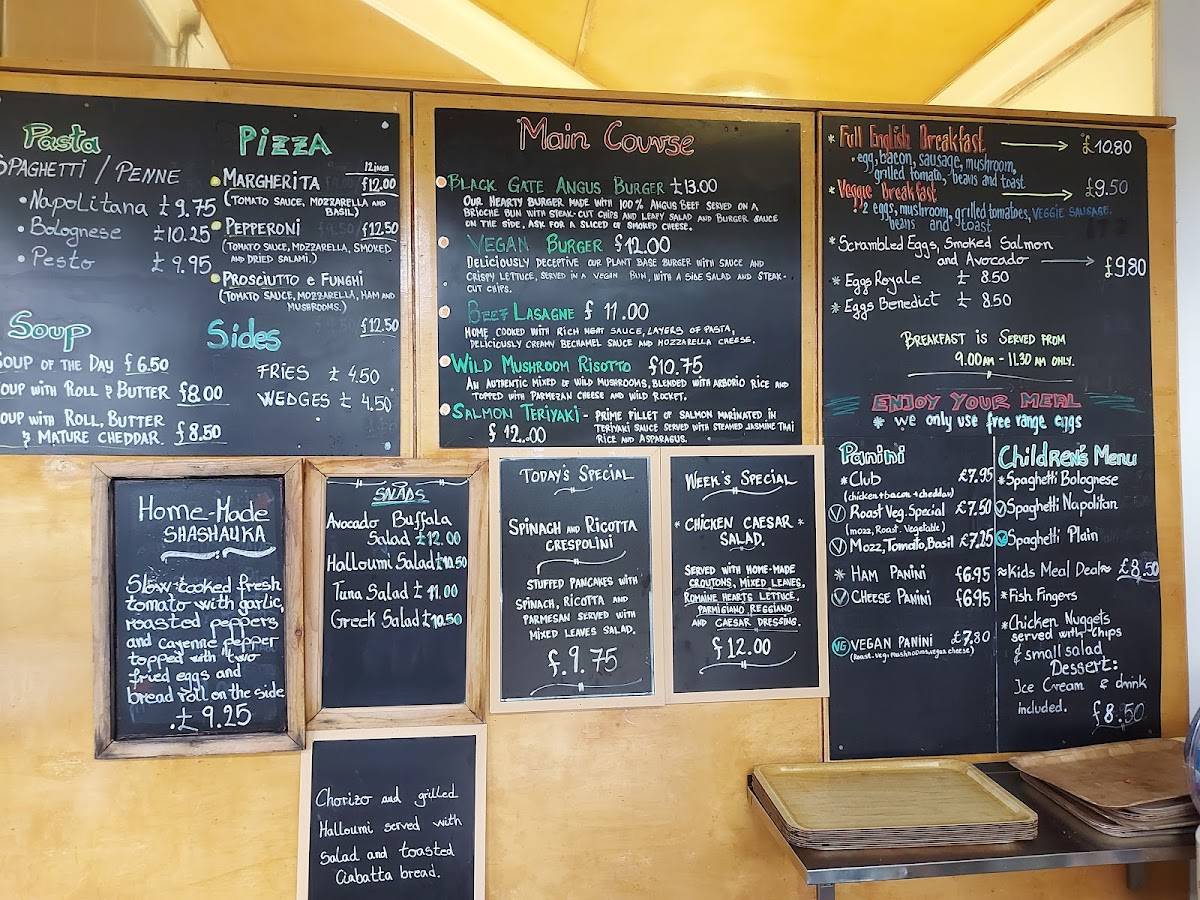 Pasta
SPAGHETTI / PENNE
• Napolitana £ 9.75
• Bolognese £10.25
• Pesto £ 9.95
Soup
SOUP OF THE DAY £6.50
SOUP WITH ROLL & BUTTER £8.00
SOUP WITH ROLL, BUTTER
& MATURE CHEDDAR. £8.50
PIZZA
12 inch
• MARGHERITA £12.00
(TOMATO SAUCE, MOZZARELLA AND
BASIL)
• PEPPERONI £12.50
(TOMATO SAUCE, MOZZARELLA, SMOKED
AND DRIED SALAMI.)
• PROSCIUTTO e FUNGHI
(TOMATO SAUCE, MOZZARELLA, HAM AND
MUSHROOMS.)
£12.50
Sides
FRIES £ 4.50
WEDGES £ 4.50
Main Course
BLACK GATE ANGUS BURGER £13.00
OUR HEARTY BURGER MADE WITH 100% ANGUS BEEF SERVED ON A
BRIOCHE BUN WITH STEAK-CUT CHIPS AND LEAFY SALAD AND BURGER SAUCE
ON THE SIDE. ASK FOR A SLICED OF SMOKED CHEESE.
VEGAN BURGER £12.00
DELICIOUSLY DECEPTIVE OUR PLANT BASE BURGER WITH SAUCE AND
CRISPY LETTUCE, SERVED IN A VEGAN BUN, WITH A SIDE SALAD AND STEAK-
CUT CHIPS.
BEEF LASAGNE £ 11.00
HOME COOKED WITH RICH MEAT SAUCE, LAYERS OF PASTA,
DELICIOUSLY CREAMY BECHAMEL SAUCE AND MOZZARELLA CHEESE.
WILD MUSHROOM RISOTTO £10.75
AN AUTHENTIC MIXED OF WILD MUSHROOMS, BLENDED WITH ARBORIO RICE AND
TOPPED WITH PARMEZAN CHEESE AND WILD ROCKET.
SALMON TERIYAKI - PRIME FILLET OF SALMON MARINATED IN
TERIYAKI SAUCE SERVED WITH STEAMED JASMINE THAI
£ 12.00 RICE AND ASPARAGUS.
* Full English Breakfast → £10.80
• egg, bacon, sausage, mushroom,
grilled tomato, beans and toast
* Veggie Breakfast → £9.50
• 2 eggs, mushroom, grilled tomatoes, VEGGIE SAUSAGE.
beans and toast
* Scrambled Eggs, Smoked Salmon
and Avocado → £9.80
* Eggs Royale £ 8.50
* Eggs Benedict £ 8.50
BREAKFAST IS SERVED FROM
9.00AM - 11.30 AM ONLY.
ENJOY YOUR MEAL
* we only use free range eggs
Panini
* Club £7.95
(chicken+bacon+cheddar)
V Roast Veg. Special £7.50
(mozz, Roast. Vegetable)
V Mozz, Tomato, Basil £7.25
* HAM PANINI £6.95
V CHEESE PANINI £6.95
VG VEGAN PANINI £7.80
(Roast. veg. mushrooms, vegan cheese)
Children's Menu
* Spaghetti Bolognese
V Spaghetti Napolitan
VG Spaghetti Plain
≈Kids Meal Deal≈ £8,50
* Fish Fingers
* Chicken Nuggets
served with chips
& small salad
Dessert:
Ice Cream & drink
included. £8.50
HOME-MADE
SHASHAUKA
Slow-cooked fresh
tomato with garlic,
roasted peppers
and cayenne pepper
topped with two
fried eggs and
bread roll on the side
.£ 9.25
SALADS
Avocado Buffala
Salad £12.00
Halloumi Salad £10.50
Tuna Salad £ 11.00
Greek Salad £10.50
TODAY'S SPECIAL
SPINACH AND RICOTTA
CRESPOLINI
STUFFED PANCAKES WITH
SPINACH, RICOTTA AND
PARMESAN SERVED WITH
MIXED LEAVES SALAD.
£.9.75
WEEK'S SPECIAL
* CHICKEN CAESAR *
SALAD.
SERVED WITH HOME-MADE
CROUTONS, MIXED LEAVES,
ROMAINE HEARTS LETTUCE,
PARMIGIANO REGGIANO
AND CAESAR DRESSING.
£12.00
Chorizo and grilled
Halloumi served with
Salad and toasted
Ciabatta bread.